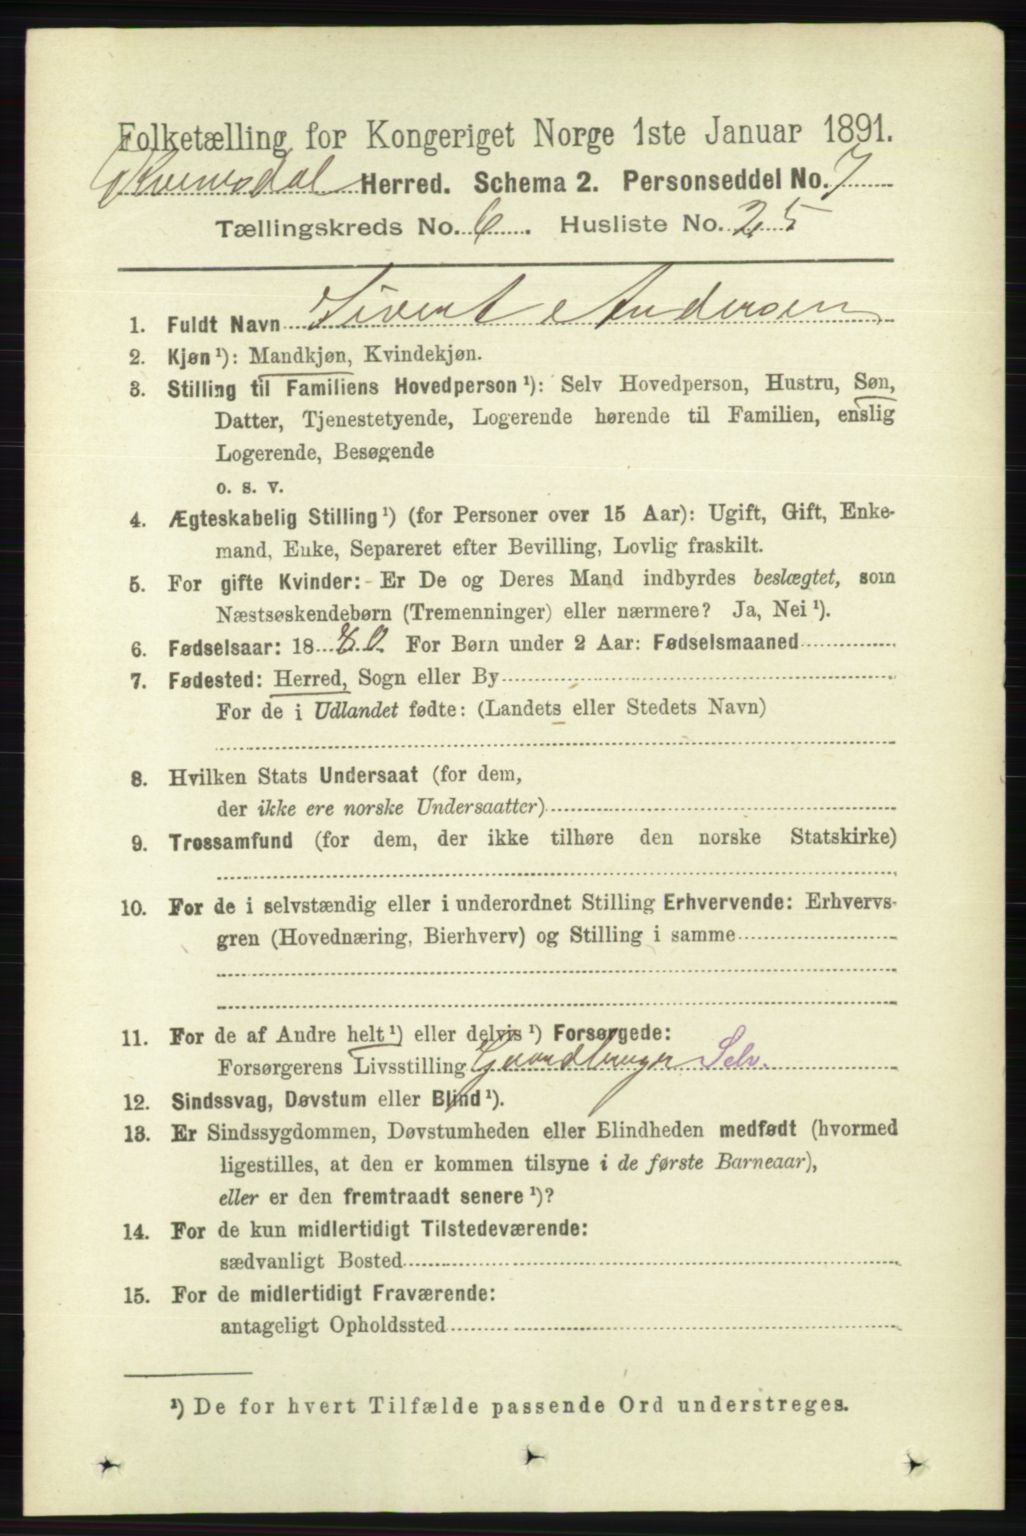 Folketælling for Kongeriget Norge 1ste Januar 1891.
Kvinesdal Herred. Schema 2. Personseddel No. 7
Tællingskreds No. 6. Husliste No. 25
1. Fuldt Navn Sivert Andersen
2. Kjøn ¹): Mandkjøn, Kvindekjøn.
3. Stilling til Familiens Hovedperson ¹): Selv Hovedperson, Hustru, Søn,
Datter, Tjenestetyende, Logerende hørende til Familien, enslig
Logerende, Besøgende
o. s. v.
4. Ægteskabelig Stilling ¹) (for Personer over 15 Aar): Ugift, Gift, Enke-
mand, Enke, Separeret efter Bevilling, Lovlig fraskilt.
5. For gifte Kvinder: Er De og Deres Mand indbyrdes beslægtet, som
Næstsøskendebørn (Tremenninger) eller nærmere? Ja, Nei ¹).
6. Fødselsaar: 1880. For Børn under 2 Aar: Fødselsmaaned
7. Fødested: Herred, Sogn eller By
For de i Udlandet fødte: (Landets eller Stedets Navn)
8. Hvilken Stats Undersaat (for dem,
der ikke ere norske Undersaatter)
9. Trossamfund (for dem, der ikke tilhøre den norske Statskirke)
10. For de i selvstændig eller i underordnet Stilling Erhvervende: Erhvervs-
gren (Hovednæring, Bierhverv) og Stilling i samme
11. For de af Andre helt ¹) eller delvis ¹) Forsørgede:
Forsørgerens Livsstilling Gaardbruger Selv.
12. Sindssvag, Døvstum eller Blind ¹).
13. Er Sindssygdommen, Døvstumheden eller Blindheden medfødt (hvormed
ligestilles, at den er kommen tilsyne i de første Barneaar),
eller er den fremtraadt senere ¹)?
14. For de kun midlertidigt Tilstedeværende:
sædvanligt Bosted
15. For de midlertidigt Fraværende:
antageligt Opholdssted
¹) De for hvert Tilfælde passende Ord understreges.